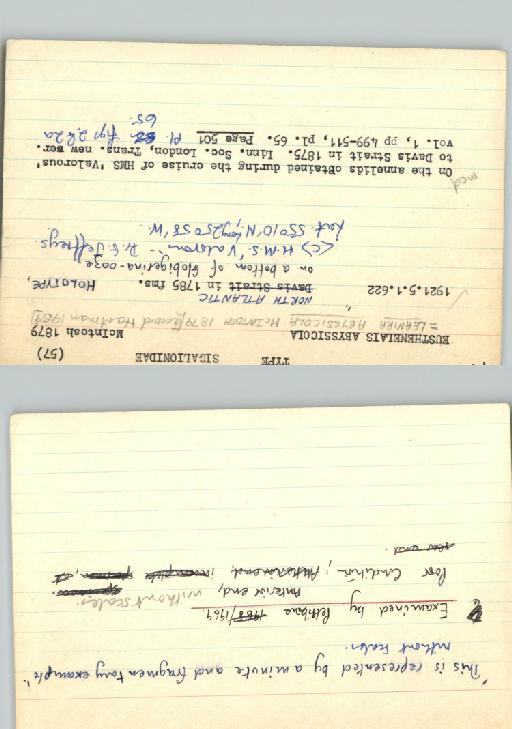 TYPE SIGALIONIDAE (57)
EUSTHENELAIS ABYSSICOLA McIntosh 1879
= LEANIRA ABYSSICOLA McINTOSH 1879 (second Hartman 1959)
NORTH ATLANTIC
1921.5.1.622 Davis Strait in 1785 fms. HOLOTYPE,
on a bottom of Globigerina-ooze
(C) H.M.S. 'Valorous' - Dr. G. Jeffreys.
Lat. 55°10'N, Long 25°58'W.
mcd
On the annelids obtained during the cruise of HMS 'Valorous'
to Davis Strait in 1875. Linn. Soc. London, Trans. new ser.
vol. 1, pp 499-511, pl. 65. Page 501 Pl. figs 2 & 2a
65.
"This is represented by a minute and fragmentary example"
without scales.
Examined by Pettibone 1968/1969
Anterior end, without scales
Poor condition; Anterior end, incomplete